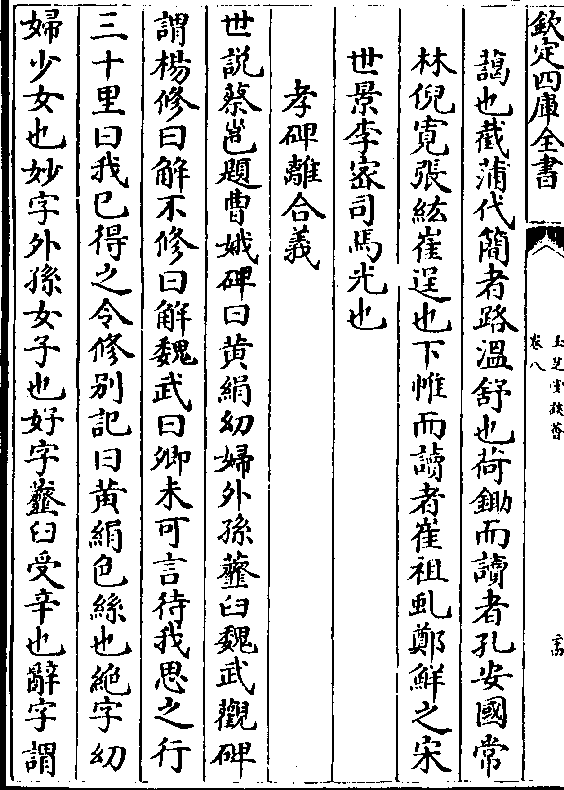 欽定四庫全書
玉芝堂談薈
卷八
藹也截蒲代簡者路溫舒也荷鋤而讀者孔安國常
林倪寛張紘崔逞也下帷而讀者崔祖虬鄭鮮之宋
世景李宻司馬光也
孝碑離合義
世説蔡邕題曹娥碑曰黄絹幼婦外孫虀臼魏武觀碑
謂楊修曰解不修曰解魏武曰卿未可言待我思之行
三十里曰我已得之令修别記曰黄絹色絲也絶字幼
婦少女也妙字外孫女子也好字虀臼受辛也辭字謂